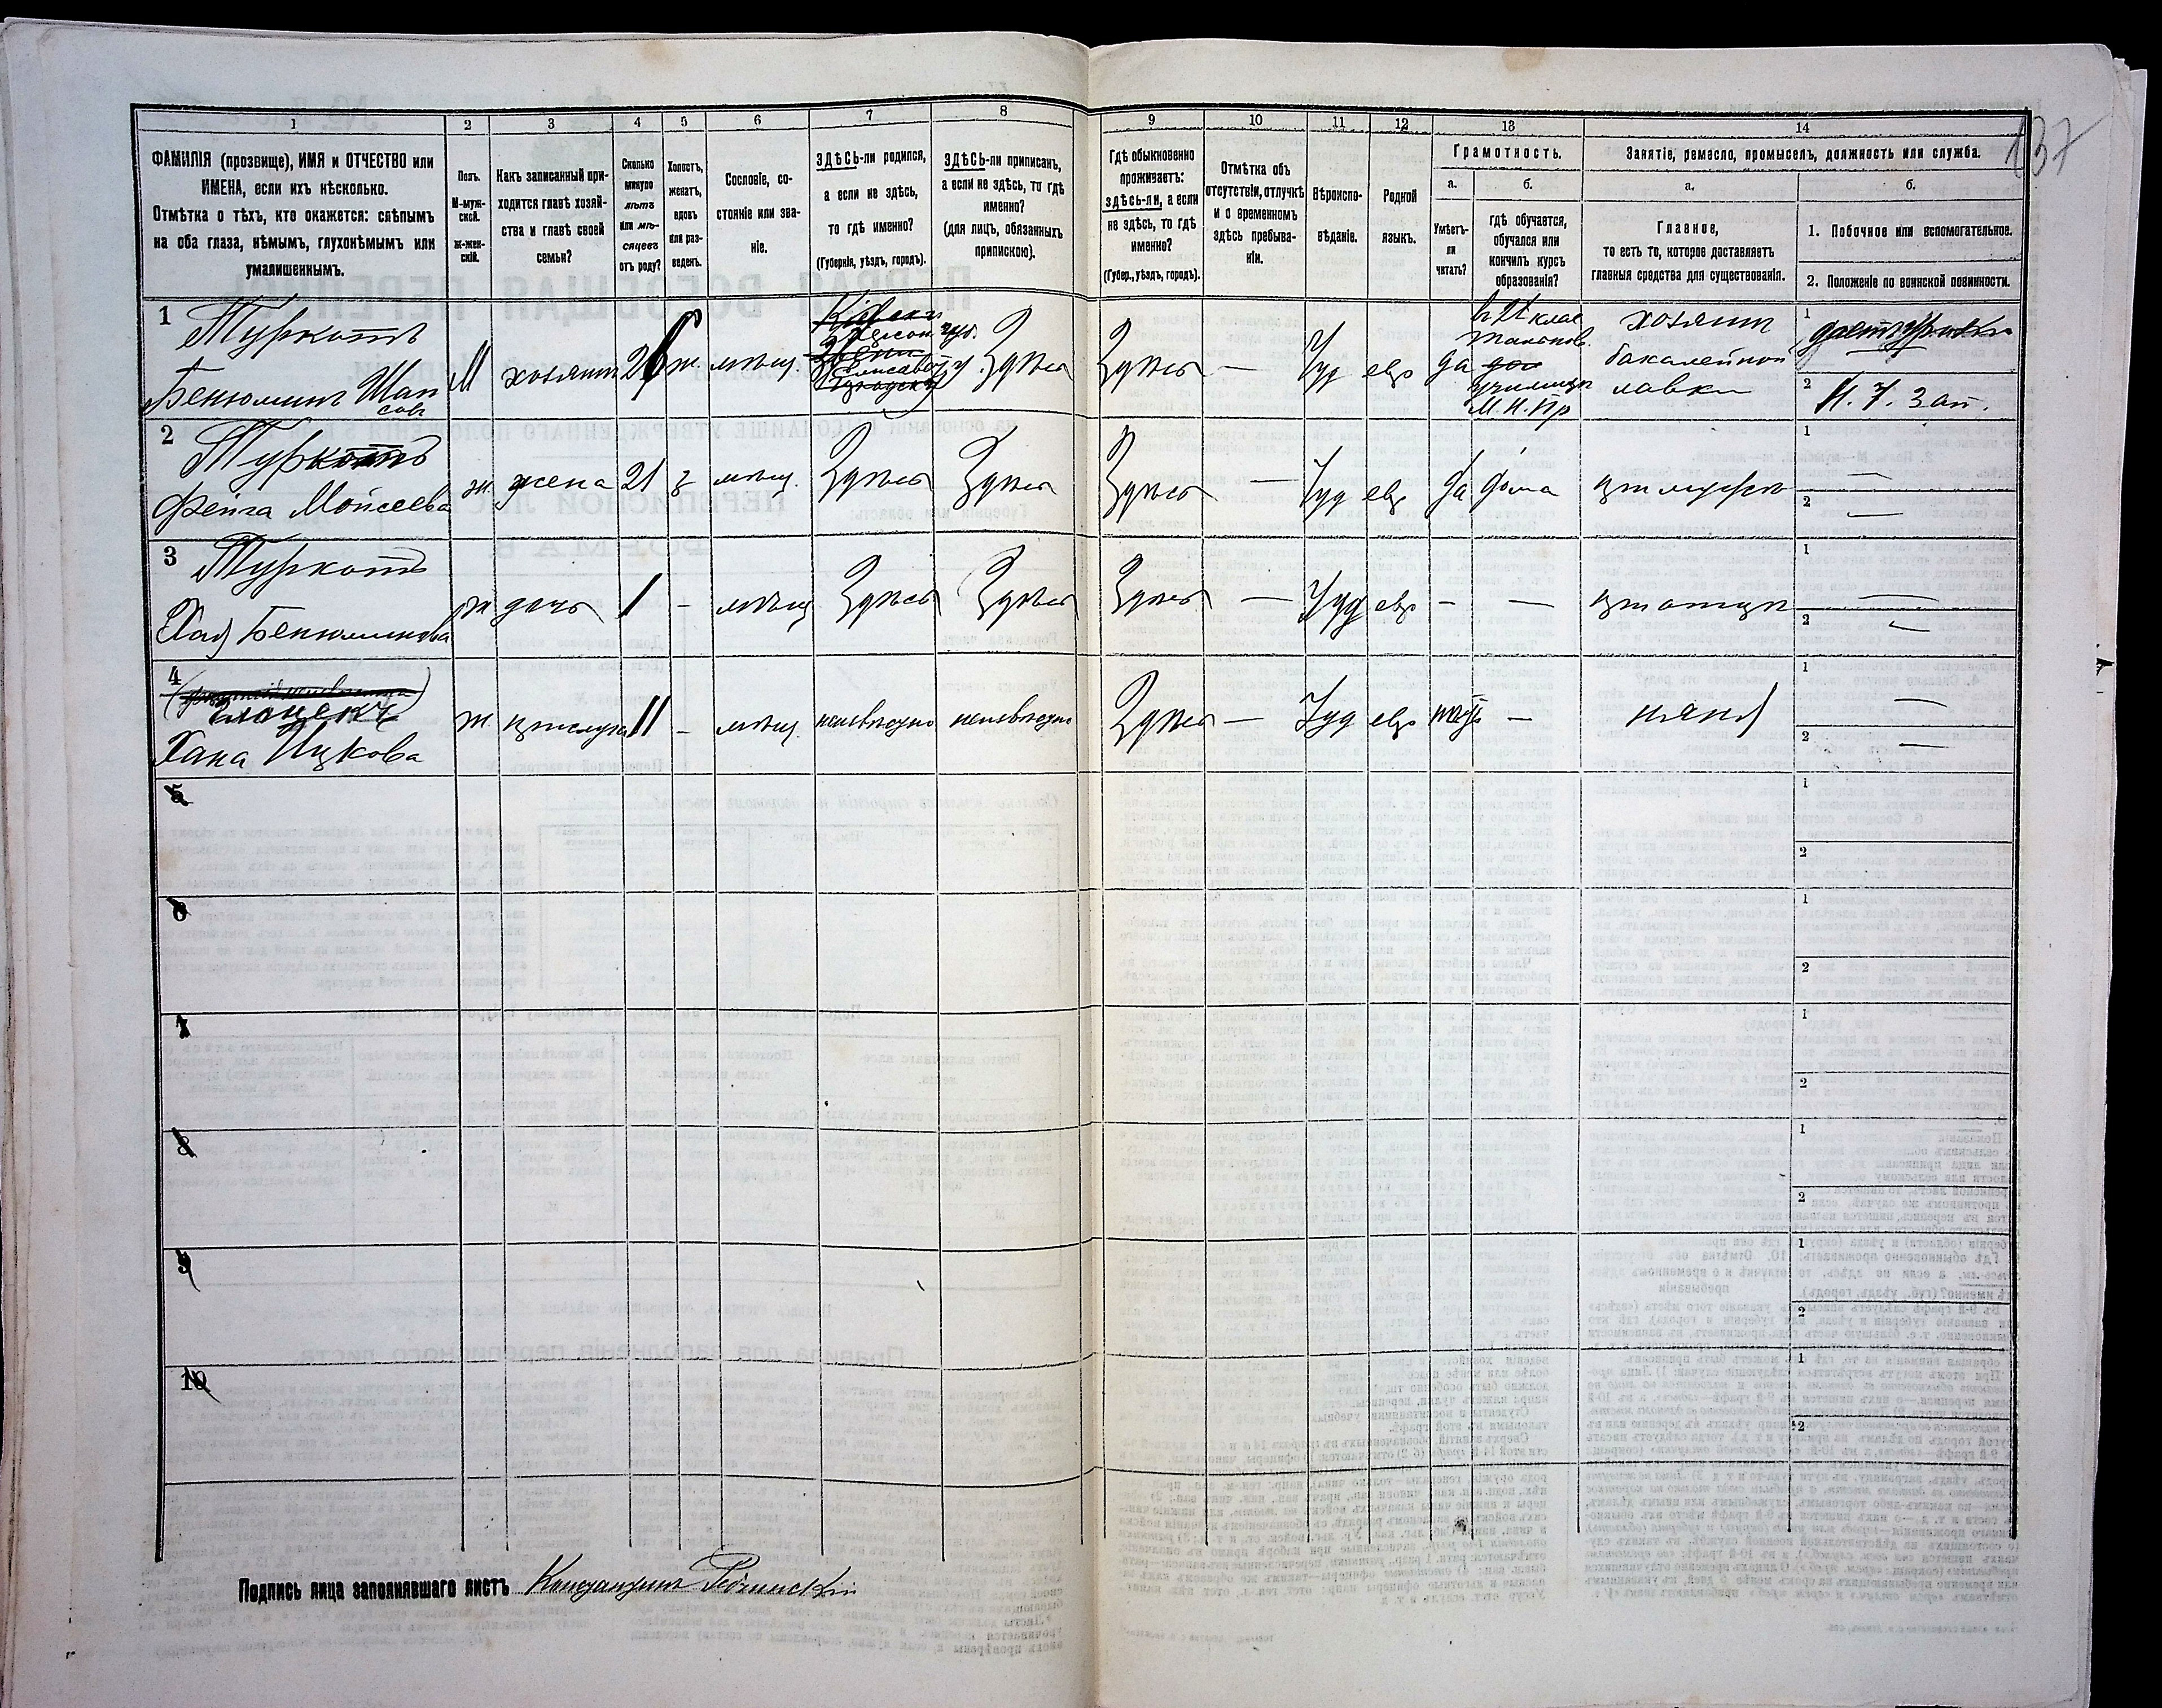 137
1 2 3 4 5 6 7 8 9 10 11 12 13 14
ФАМИЛІЯ (прозвище), ИМЯ и ОТЧЕСТВО или
ИМЕНА, если ихъ нѣсколько.
Отмѣтка о тѣхъ, кто окажется: слѣпымъ
на оба глаза, нѣмымъ, глухонѣмымъ или
умалишеннымъ.
Полъ.
М-муж-
ской.
Ж-жен-
скій.
Какъ записанный при-
ходится главѣ хозяй-
ства и главѣ своей
семьи?
Сколько
минуло
лѣтъ
или мѣ-
сяцевъ
отъ роду?
Холостъ,
женатъ,
вдовъ
или раз-
веденъ.
Сословіе, со-
стояніе или зва-
ніе.
ЗДѢСЬ-ли родился,
а если не здѣсь,
то гдѣ именно?
(Губернія, уѣздъ, городъ).
ЗДѢСЬ-ли приписанъ,
а если не здѣсь, то гдѣ
именно?
(для лицъ, обязанныхъ
припискою).
Гдѣ обыкновенно
проживаетъ:
здѣсь-ли, а если
не здѣсь, то гдѣ
именно?
(Губер., уѣздъ, городъ).
Отмѣтка объ
отсутствіи, отлучкѣ
и о временномъ
здѣсь пребыва-
ніи.
Вѣроиспо-
вѣданіе.
Родной
языкъ.
Грамотность.
а.
б.
Умѣетъ-
ли
читать?
гдѣ обучается,
обучался или
кончилъ курсъ
образованія?
Занятіе, ремесло, промыселъ, должность или служба.
а.
б.
Главное,
то есть то, которое доставляетъ
главныя средства для существованія.
1. Побочное или вспомогательное.
2. Положеніе по воинской повинности.
1
Туркотъ
Бенюминъ Шап
совъ
М
хозяинъ
26
ж.
мѣщ.
Здѣсь
Здѣсь
—
Іуд
евр
да
училищѣ
М. Н. Пр
хозяинъ
бакалейной
лавки
1
2
2
Туркотъ
Фейга Мойсеева
ж.
жена
21
з
мѣщ.
Здѣсь
Здѣсь
Здѣсь
—
Іуд
евр
да
дома
при мужѣ
1 —
2 —
3
Туркотъ
Хая Бенюминова
ж
дочь
1
-
мѣщ
Здѣсь
Здѣсь
Здѣсь
—
Іуд
евр
-
—
при отцѣ
1 —
2 —
4
Хана Ицкова
ж.
прислуга
11
-
мѣщ.
неизвѣстно
неизвѣстно
Здѣсь
—
Іуд
евр
—
няня
1 —
2 —
5
1
2
6
1
2
7
1
2
8
1
2
9
1
2
10
1
2
Подпись лица заполнявшаго листъ